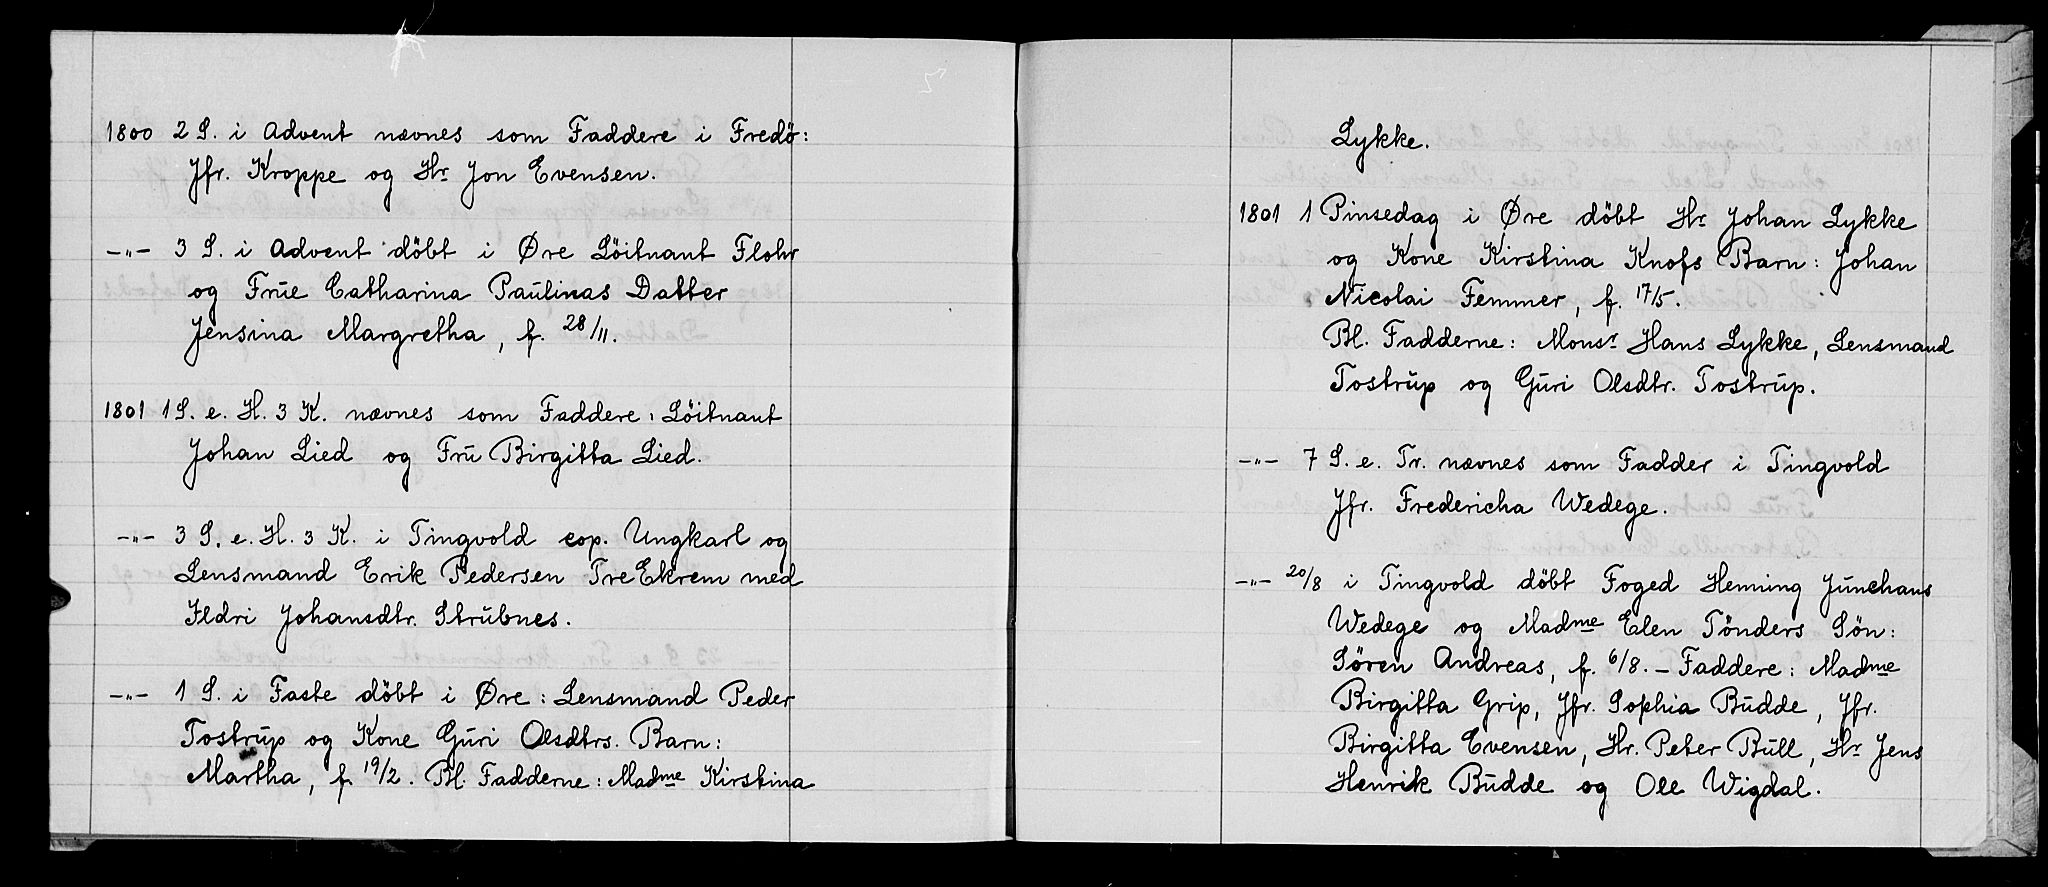 1800 2 S. i Advent nævnes som Faddere i Fredö:
Jfr. Kroppe og Hr. Jon Evensen.
-"- 3 S. i Advent döbt i Øre Löitnant Flohr
og Frue Catharina Paulinas Datter
Jensina Margretha, f. 28/11.
1801 1 S. e. H. 3 K. nævnes som Faddere: Löitnant
Johan Lied og Fru Birgitta Lied.
-"- 3 S. e. H. 3 K. i Tingvold cop. Ungkarl og
Lensmand Erik Pedersen TreEkrem med
Ildri Johansdtr. Strubnes.
-"- 1 S. i Faste döbt i Øre: Lensmand Peder
Tostrup og Kone Guri Olsdtrs. Barn:
Martha, f. 19/2. Bl. Fadderne: Madme Kirstina
Lykke.
1801 1 Pinsedag i Øre döbt Hr. Johan Lykke
og Kone Kirstina Knofs Barn: Johan
Nicolai Femmer, f. 17/5.
Bl. Fadderne: Monsr. Hans Lykke, Lensmand
Tostrup og Guri Olsdtr. Tostrup.
-"- 7 S. e. Tr. nævnes som Fadder i Tingvold
Jfr. Fredericha Wedege.
-"- 20/8 i Tingvold döbt Foged Henning Junchans
Wedege og Madme Elen Tönders Sön:
Sören Andreas, f. 6/8. - Faddere: Madme
Birgitta Grip, Jfr. Sophia Budde, Jfr.
Birgitta Evensen, Hr. Peter Bull, Hr. Jens
Henrik Budde og Ole Wigdal.